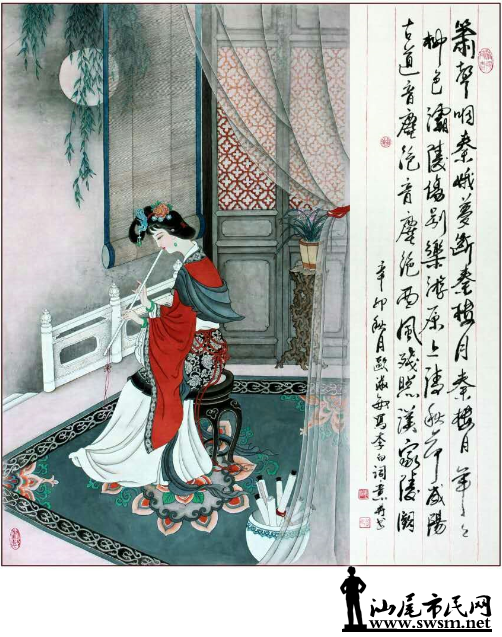 簫聲咽秦娥夢斷秦樓月秦樓月年々
柳色灞陵傷別樂游原上清秋节咸陽
古道音塵絕音塵絕西風殘照漢家陵闕
辛卯秋月歐淑敏寫李白詞意并書
汕尾市民网
www.swsm.net